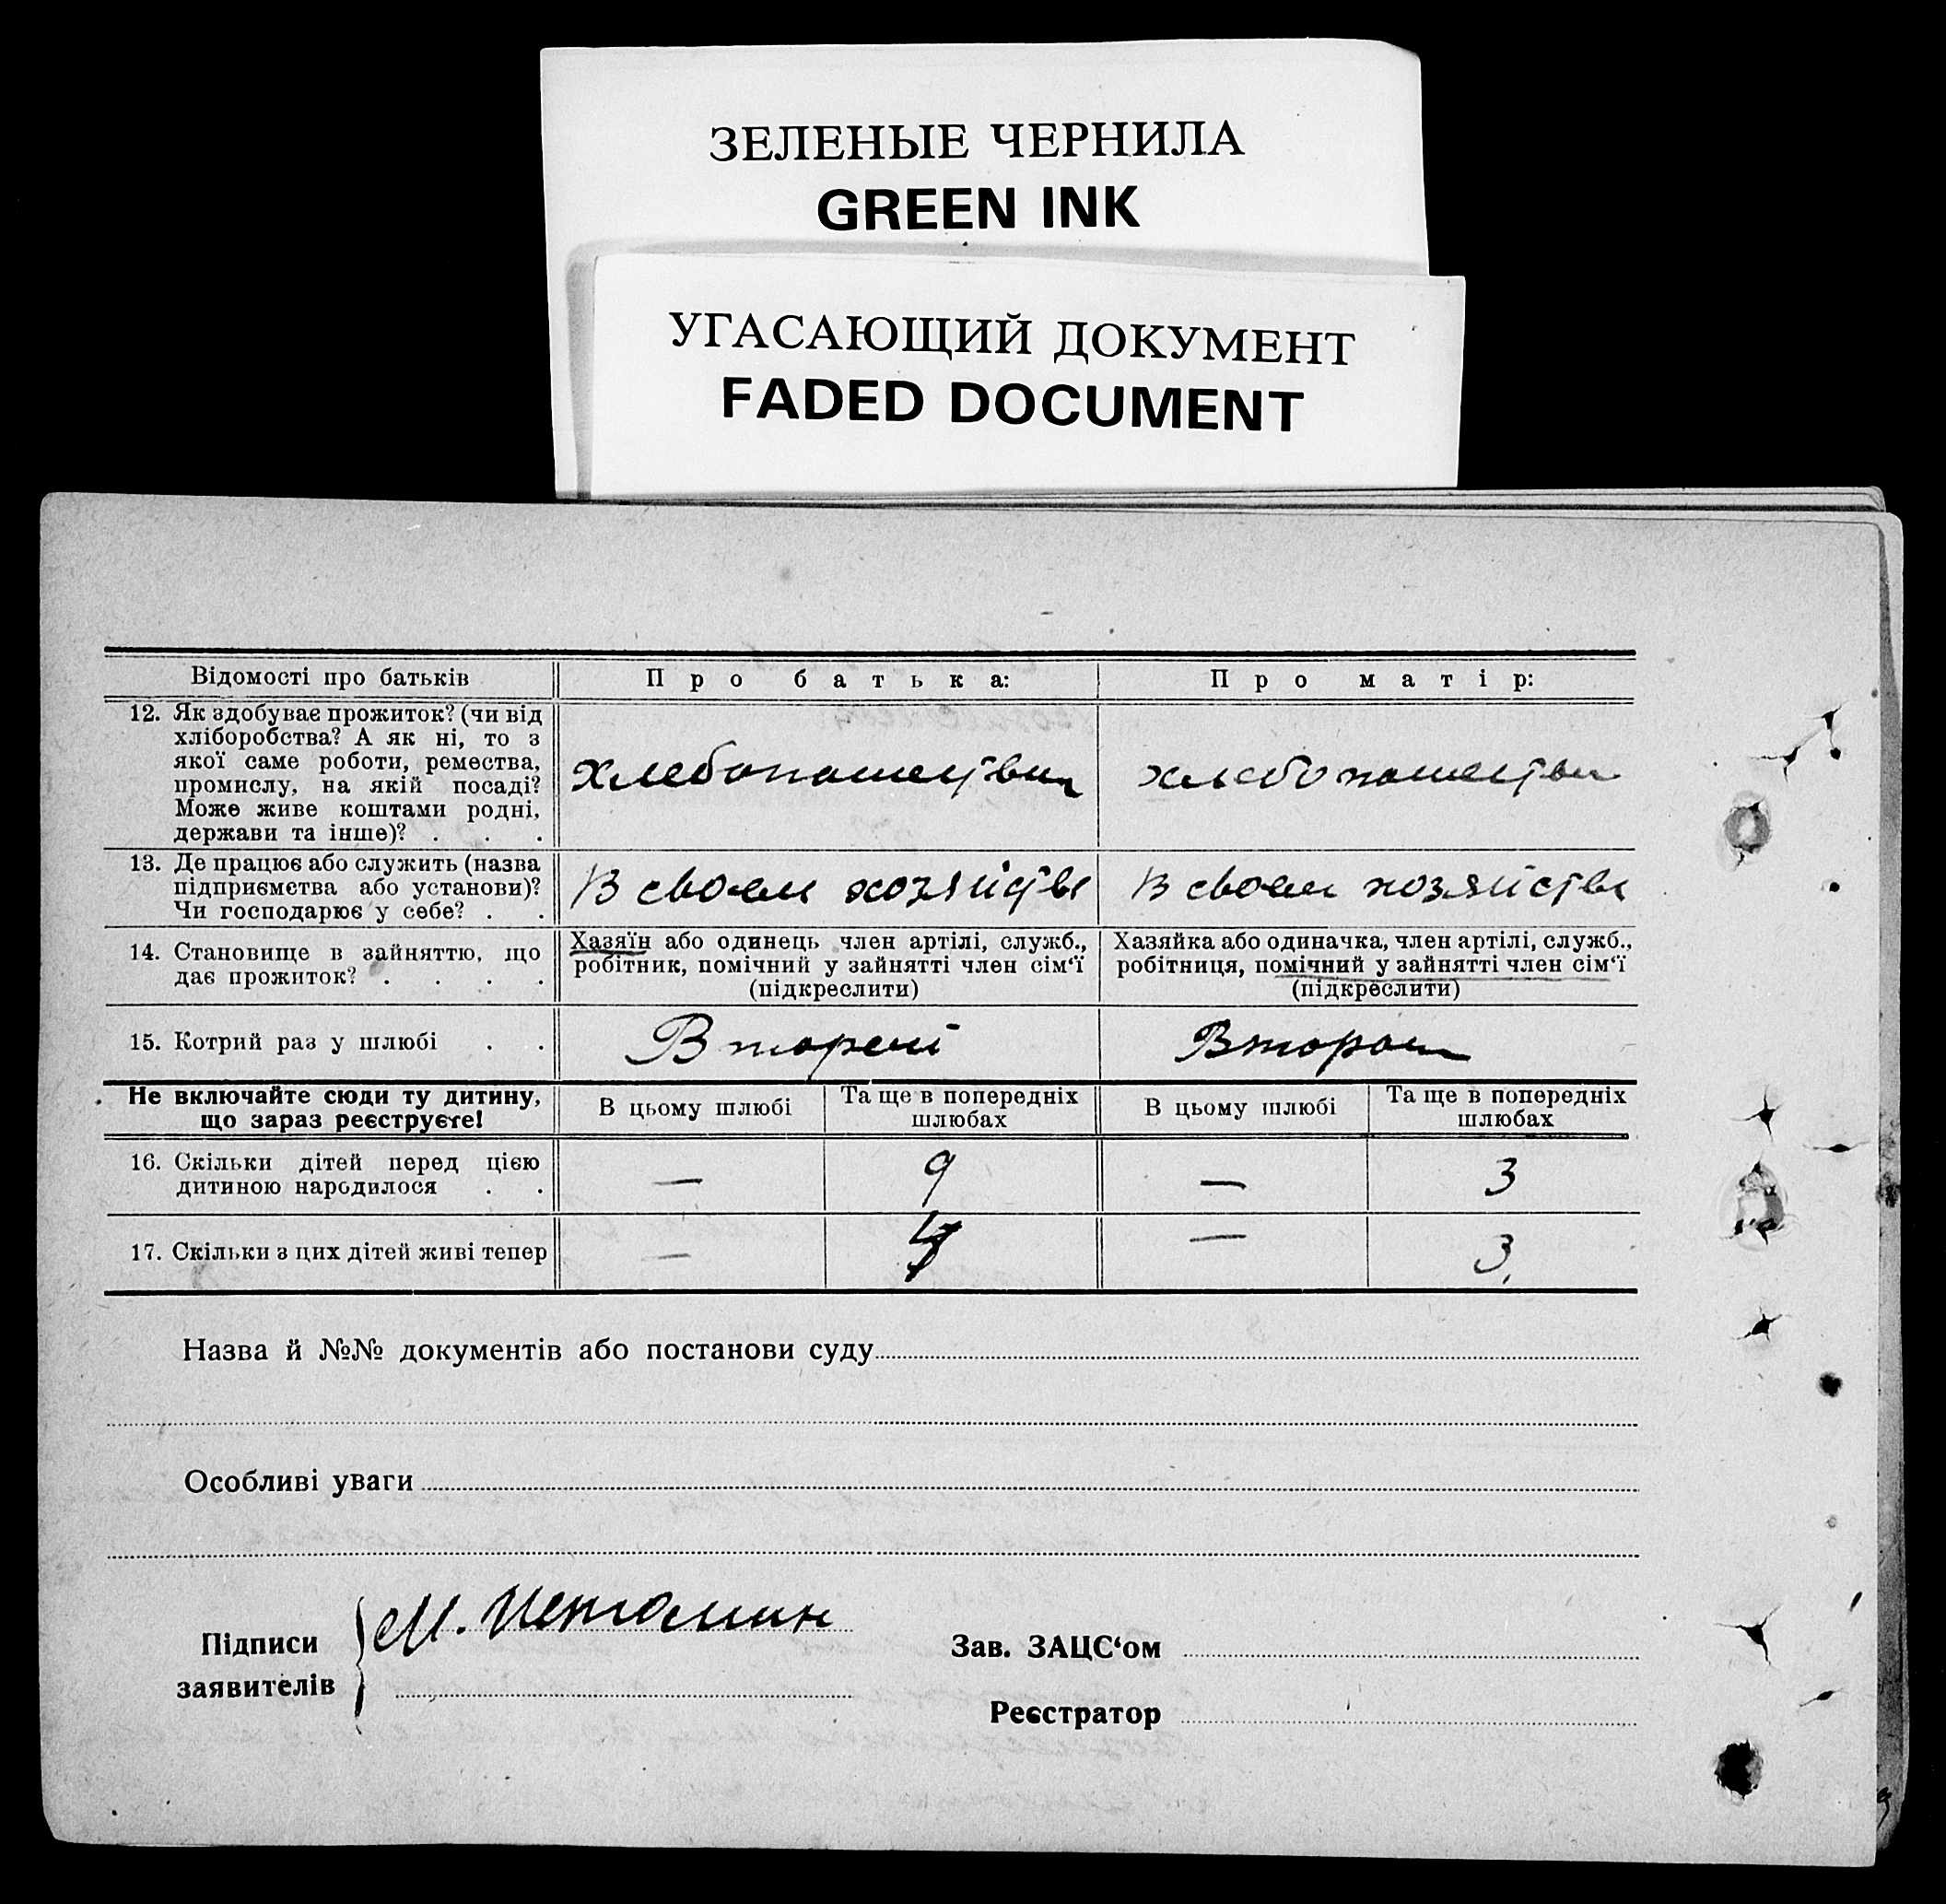 ЗЕЛЕНЫЕ ЧЕРНИЛА
GREEN INK
УГАСАЮЩИЙ ДОКУМЕНТ
FADED DOCUMENT
Відомості про батьків
Про батька:
Про матір:
12. Як здобуває прожиток? (чи від
хліборобства? А як ні, то з
якої саме роботи, ремества,
промислу, на якій посаді?
Може живе коштами родні,
держави та інше)? . . .
хлебопашества
хлебопашества
13. Де працює або служить (назва
підприємства або установи)?
Чи господарює у себе? . .
В своем хозяйстве
В своем хозяйстве
14. Становище в зайняттю, що
дає прожиток? . . . .
Хазяїн або одинець член артілі, служб.,
робітник, помічний у зайнятті член сім‘ї
(підкреслити)
Хазяйка або одиначка, член артілі, служб.,
робітниця, помічний у зайнятті член сім‘ї
(підкреслити)
15. Котрий раз у шлюбі . .
Вторей
Вторая
Не включайте сюди ту дитину,
що зараз реєструєте!
В цьому шлюбі
Та ще в попередніх
шлюбах
В цьому шлюбі
Та ще в попередніх
шлюбах
16. Скільки дітей перед цією
дитиною народилося . .
— 9 — 3
17. Скільки з цих дітей живі тепер
— — 3
Назва й №№ документів або постанови суду
Особливі уваги
Підписи
заявителів
М.
Зав. ЗАЦС‘ом
Реєстратор